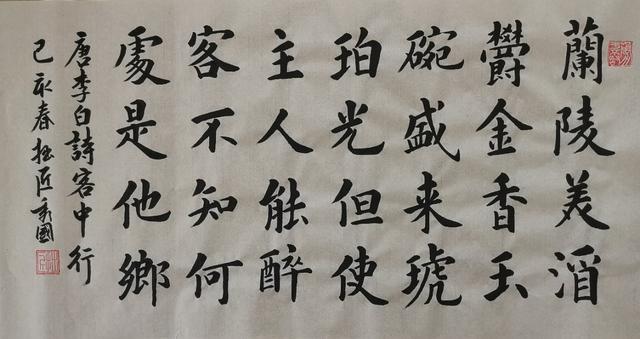 蘭陵美酒
鬱金香玉
碗盛来琥
珀光但使
主人能醉
客不知何
處是他鄉
唐李白詩客中行
己亥春拙匠國